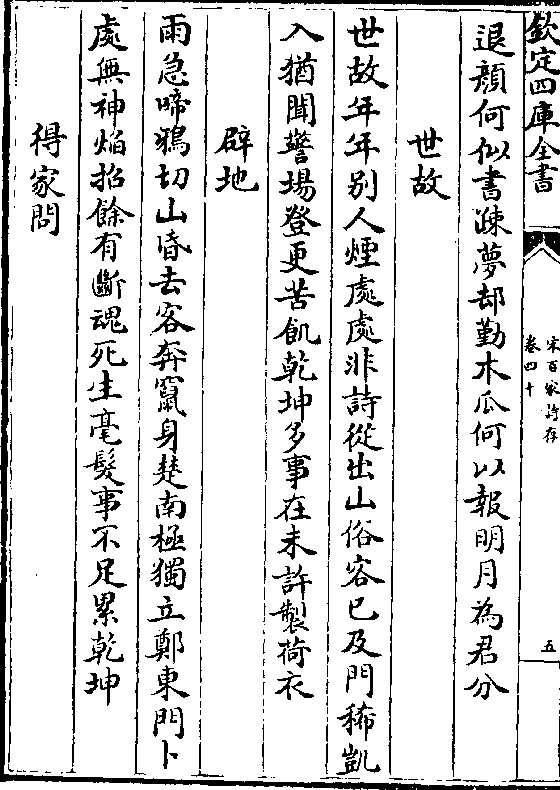 欽定四庫全書
宋百家詩存
卷四十
五
退顔何似書疎夢却勤木瓜何以報明月為君分
世故
世故年年别人煙處處非詩從出山俗客已及門稀凱
入猶聞警場登更苦飢乾坤多事在未許製荷衣
辟地
雨急啼鴉切山昏去客奔竄身楚南極獨立鄭東門卜
處無神焰招餘有斷魂死生毫髮事不足累乾坤
得家問